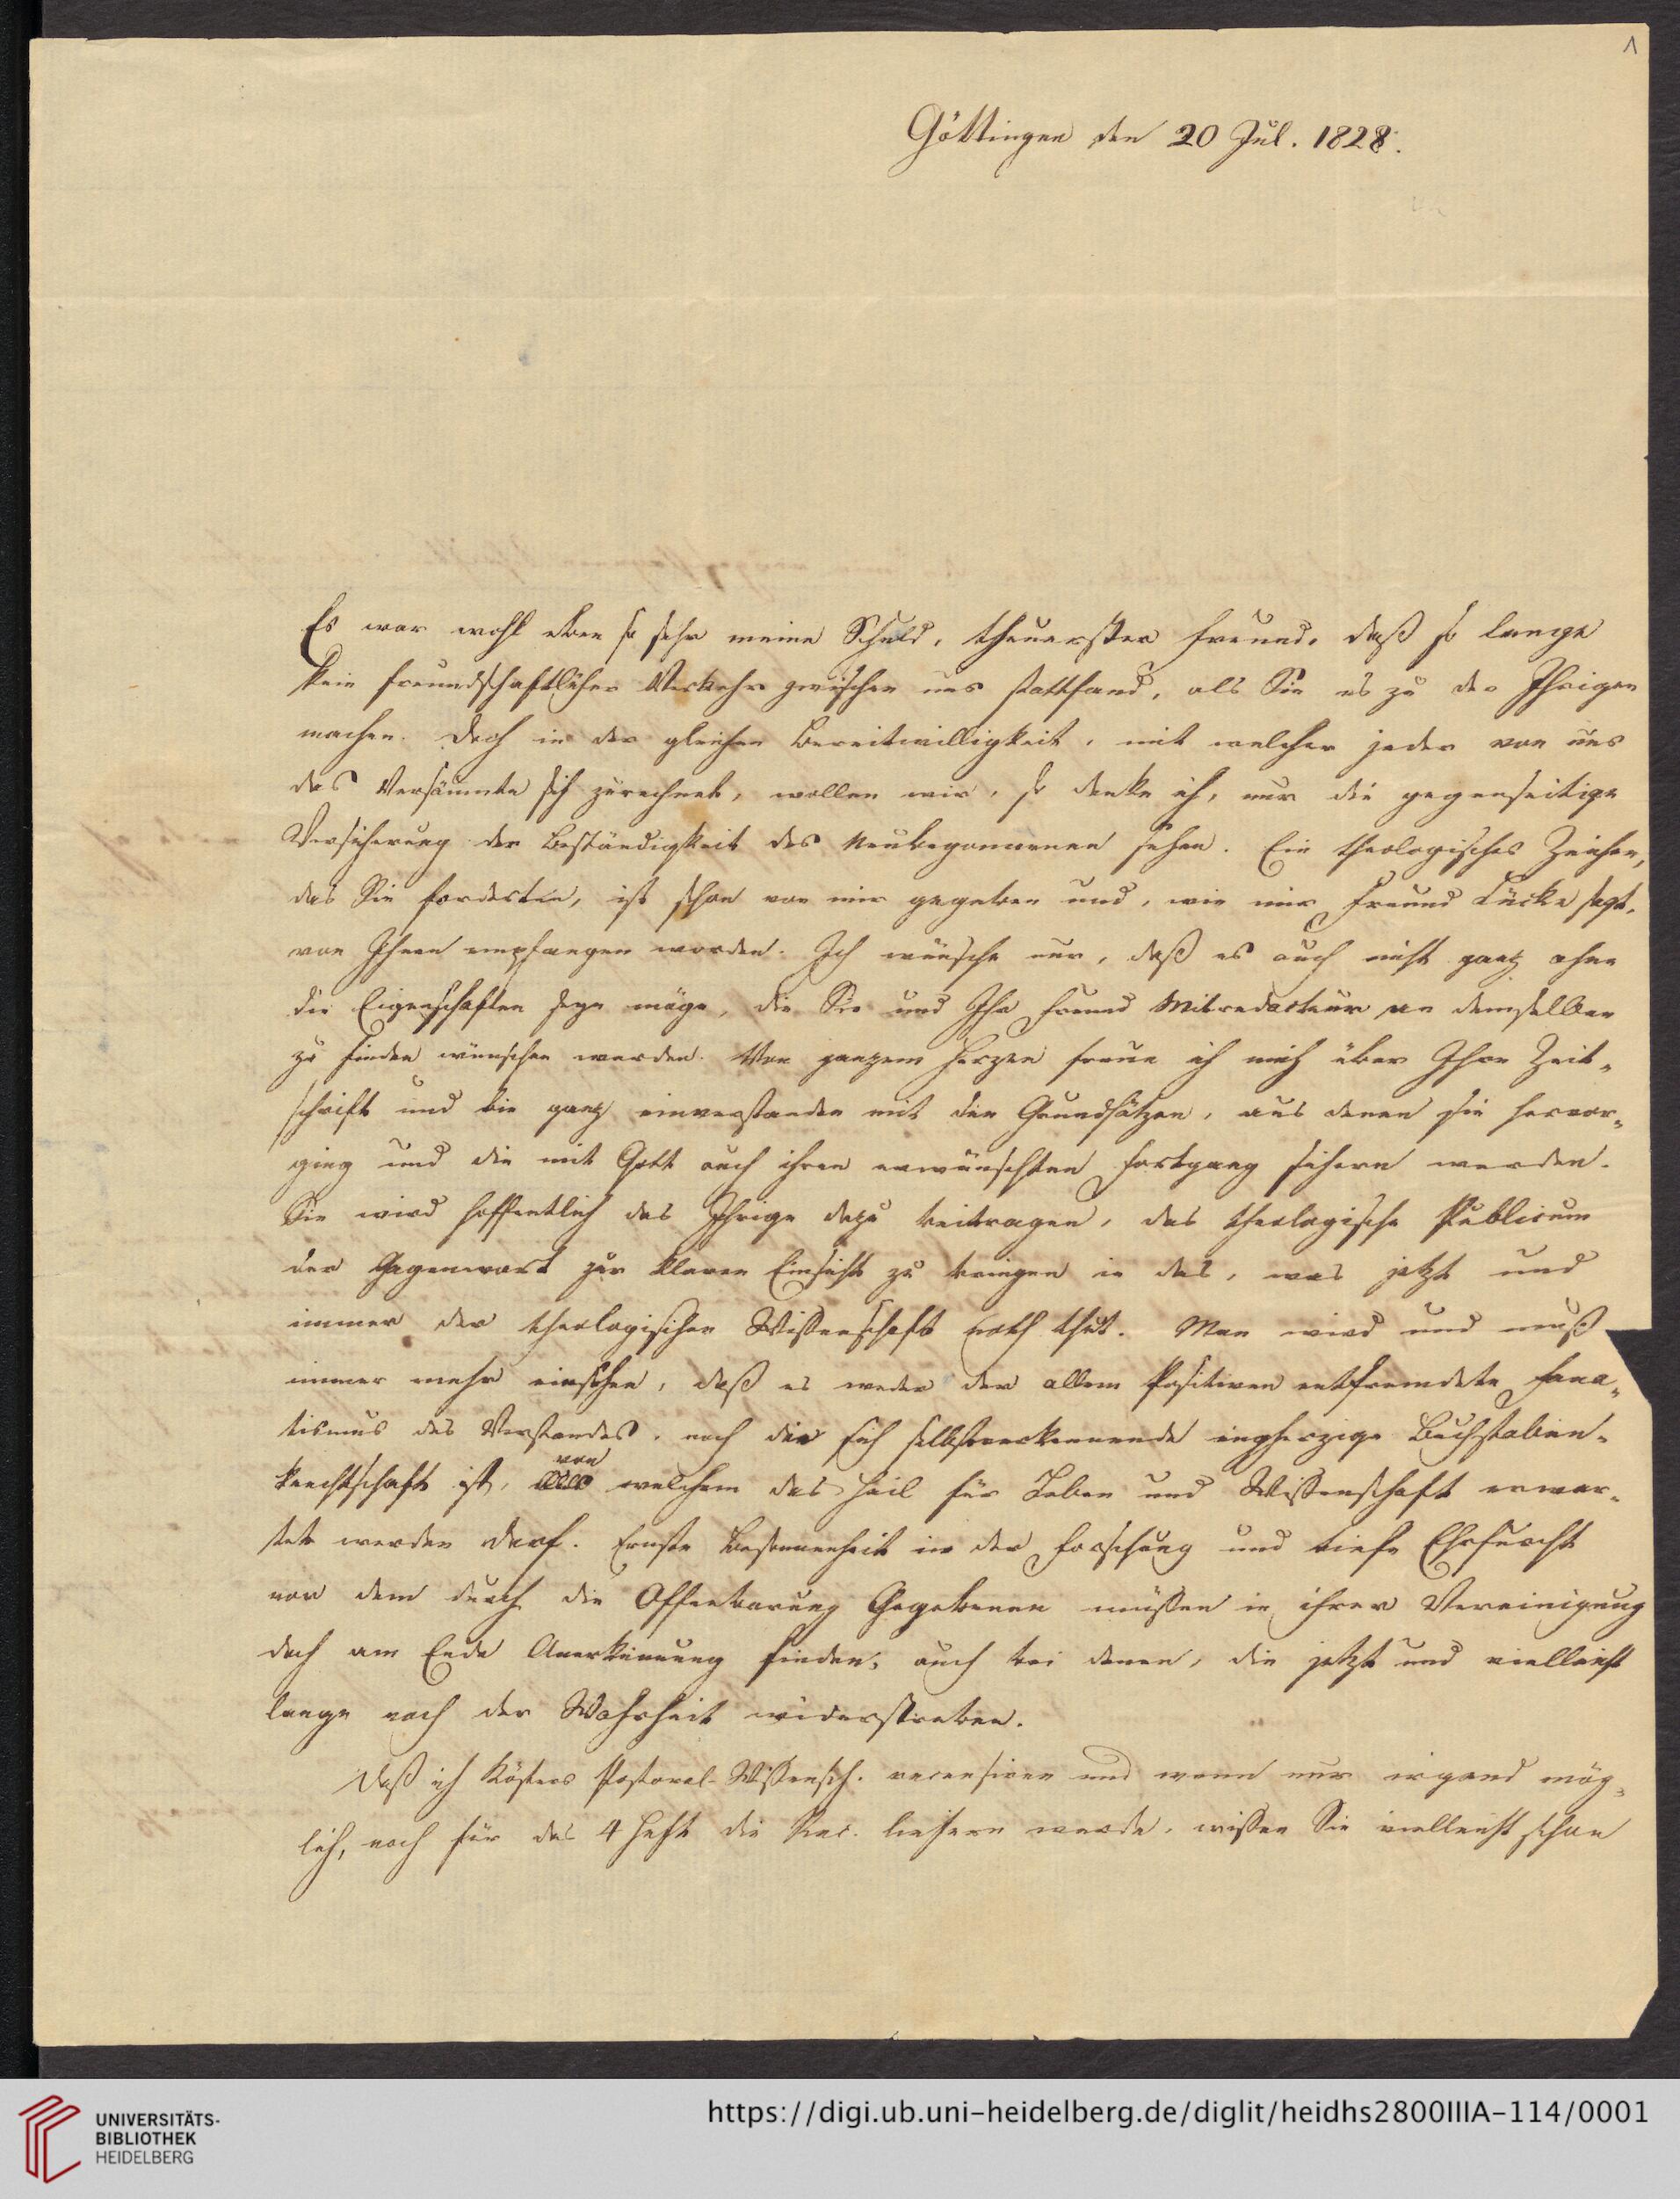 1
Göttingen den 20 Jul. 1828.
Es war wohl eben so sehr meine Schuld, theuerster Freund, daß so lange
kein freundschaftlicher Verkehr zwischen uns stattfand, als Sie es zu der Ihrigen
machen. Doch in der gleichen Bereitwilligkeit, mit welcher jeder von uns
das Versäumte sich zurechnet, wollen wir, so denke ich, nur die gegenseitige
Versicherung der Beständigkeit des Neubegonnenen sehen. Ein theologisches Zeichen,
das Sie forderten, ist schon von mir gegeben und, wie mir Freund Lücke sagt,
von Ihnen empfangen worden. Ich wünsche nur, daß es auch nicht ganz ohne
die Eigenschaften seyn möge, die Sie und Ihr Freund Mitredacteur an demselben
zu finden wünschen werden. Von ganzem Herzen freue ich mich über Ihre Zeit-
schrift und bin ganz einverstanden mit den Grundsätzen, aus denen sie hervor-
ging und die mit Gott auch ihren erwünschten Fortgang sichern werden.
Sie wird hoffentlich das Ihrige dazu beitragen, das theologische Publicum
der Gegenwart zur klaren Einsicht zu bringen in das, was jetzt und
immer der theologischen Wissenschaft noth thut. Man wird und muß
immer mehr einsehen, daß es weder der allem Positiven entfremdete Fana-
tismus des Verstandes, noch die sich selbst verkennende engherzige Buchstaben-
knechtschaft ist, von welchem das Heil für Leben und Wissenschaft erwar-
tet werden darf. Ernste Besonnenheit in der Forschung und tiefe Ehrfurcht
vor dem durch die Offenbarung Gegebenen müssen in ihrer Vereinigung
doch am Ende Anerkennung finden, auch bei denen, die jetzt und vielleicht
lange noch der Wahrheit widerstreben.
Daß ich Kösters Pastoral-Wissensch. recensiren und wenn nur irgend mög-
lich, noch für das 4 Heft die Rec. liefern werde, wissen Sie vielleicht schon
UNIVERSITÄTS-
BIBLIOTHEK
HEIDELBERG
https://digi.ub.uni-heidelberg.de/diglit/heidhs2800IIIA-114/0001